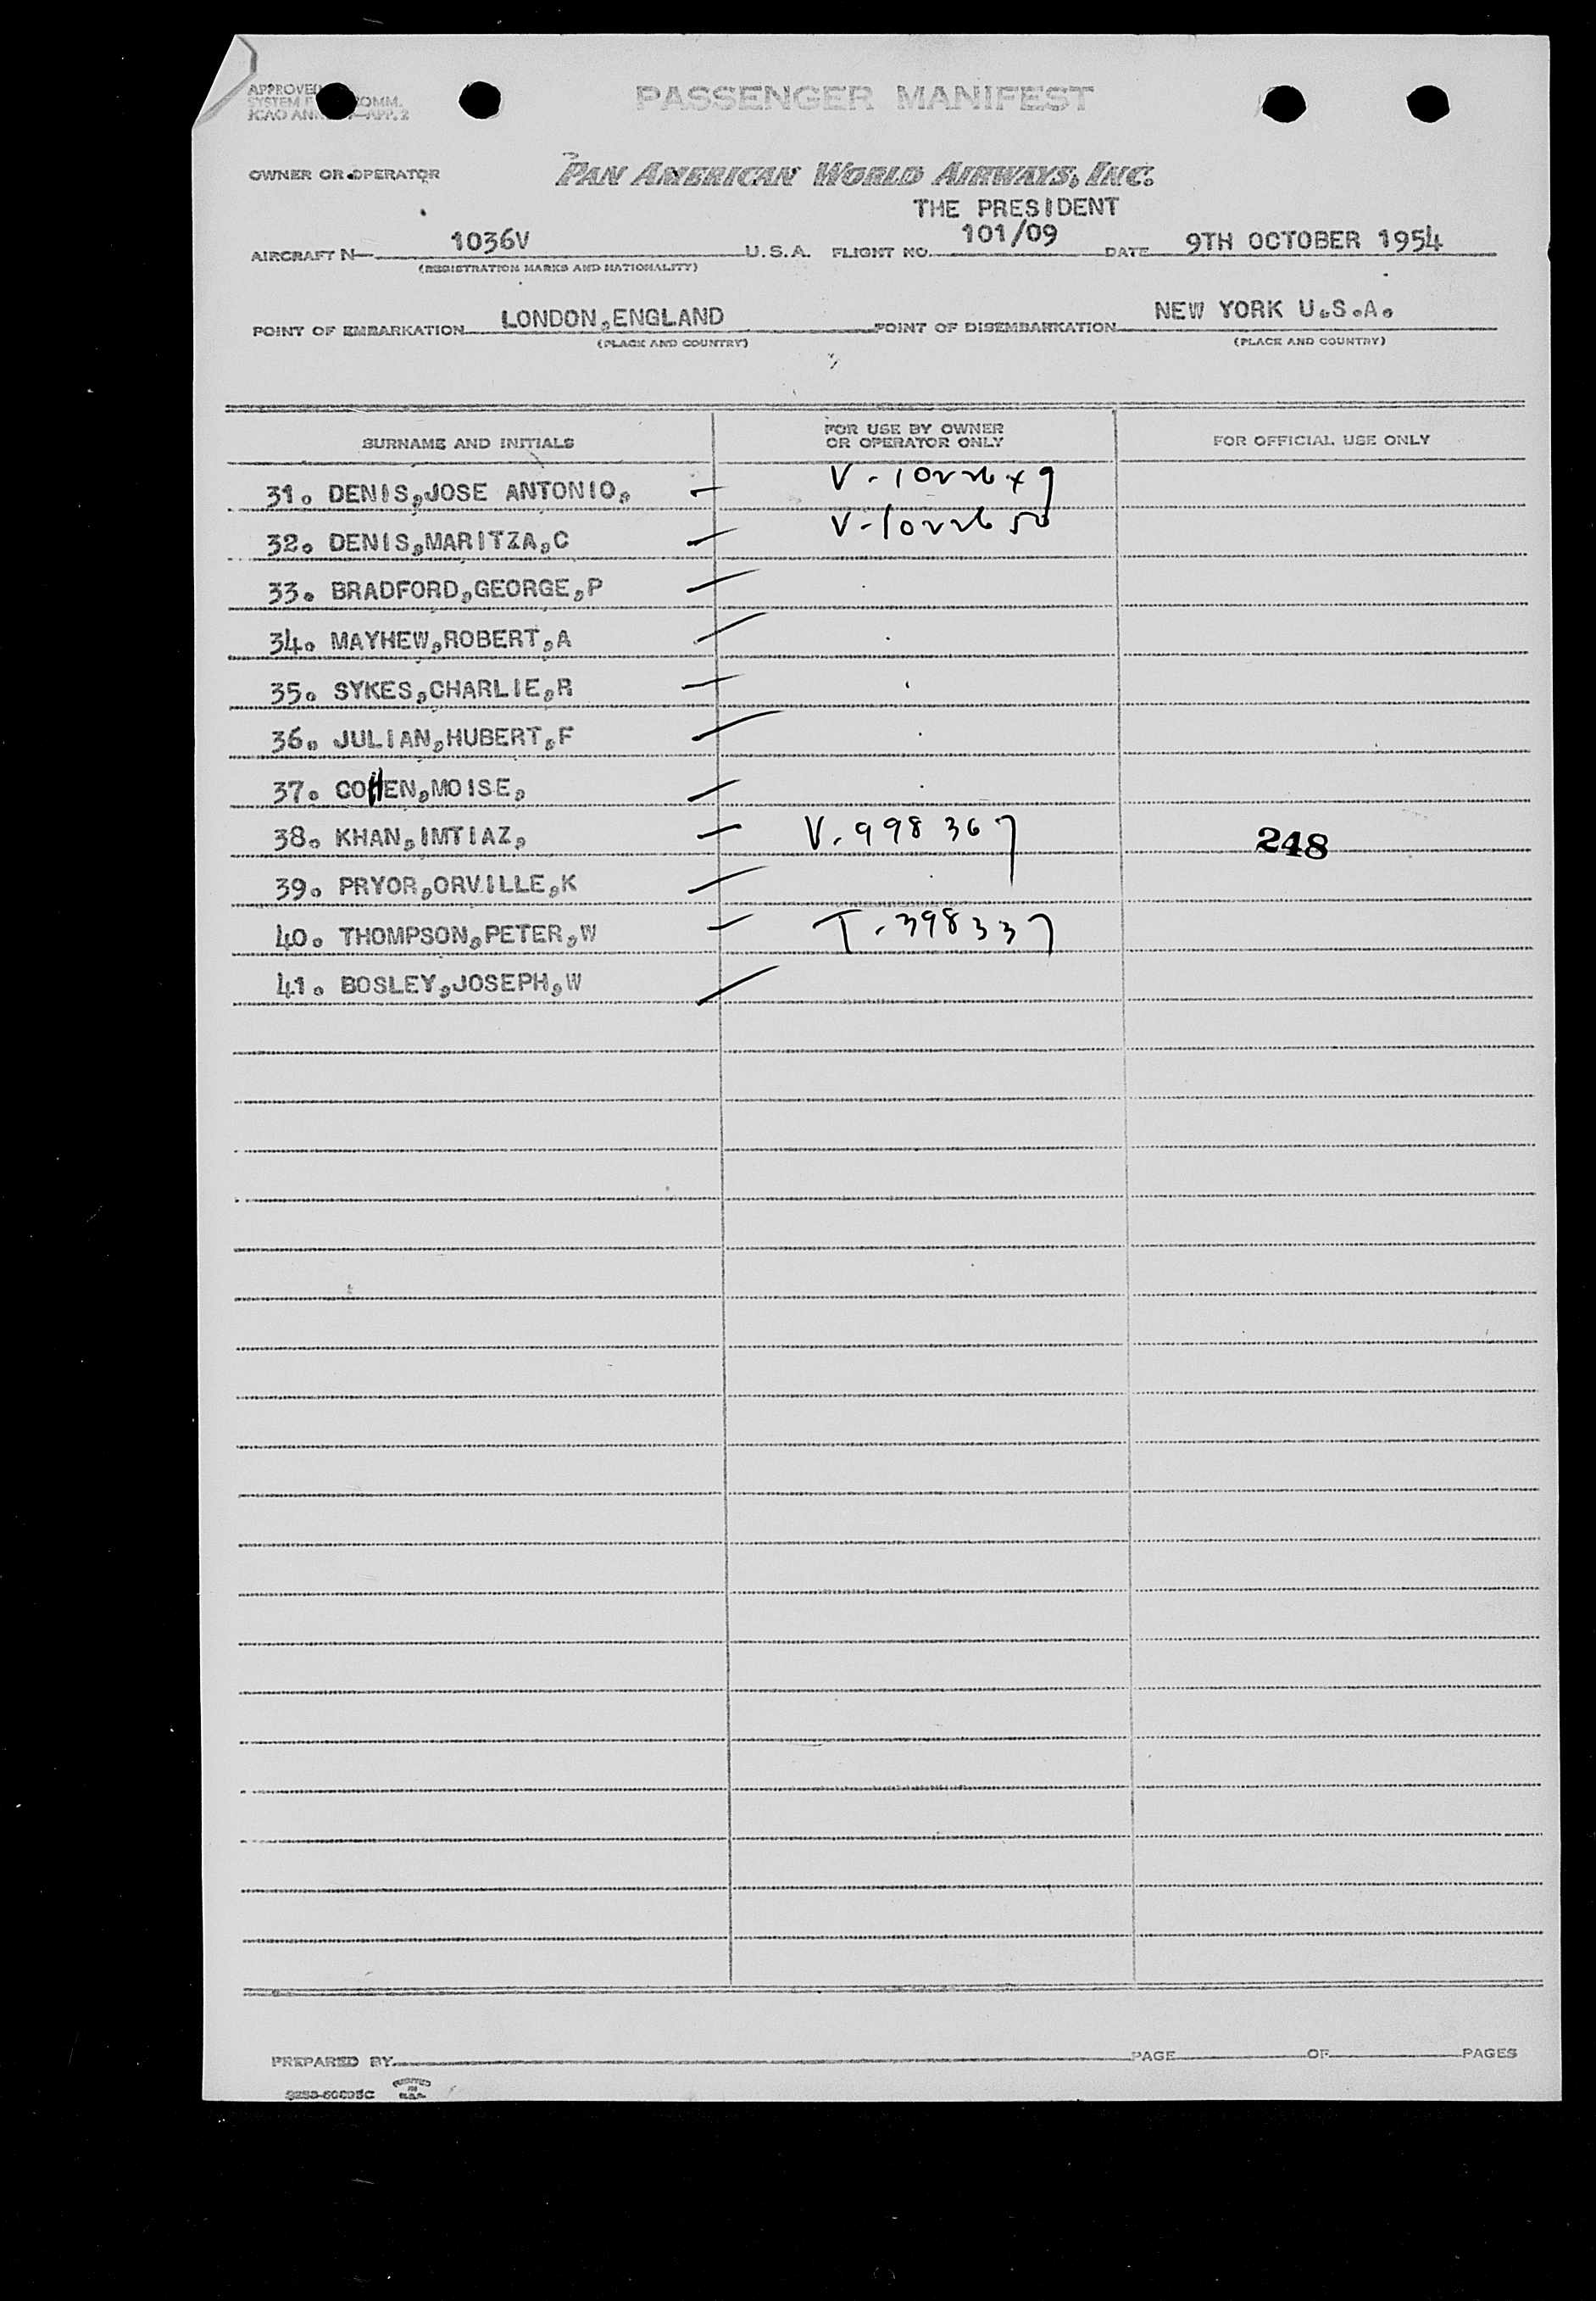 APPROVED
SYSTEM COMM.
ICAO APP. 2
PASSENGER MANIFEST
OWNER OR OPERATOR PAN AMERICAN WORLD AIRWAYS, INC.
THE PRESIDENT
AIRCRAFT N 1036V U.S.A. FLIGHT NO. 101/09 DATE 9TH OCTOBER 1954
(REGISTRATION MARKS AND NATIONALITY)
POINT OF EMBARKATION LONDON,ENGLAND POINT OF DISEMBARKATION NEW YORK U.S.A.
(PLACE AND COUNTRY) (PLACE AND COUNTRY)
SURNAME AND INITIALS FOR USE BY OWNER OR OPERATOR ONLY FOR OFFICIAL USE ONLY
31. DENIS,JOSE ANTONIO,
32. DENIS,MARITZA,C
33. BRADFORD,GEORGE,P
34. MAYHEW,ROBERT,A
35. SYKES,CHARLIE,R
36. JULIAN,HUBERT,F
37. COHEN,MOISE,
38. KHAN,IMTIAZ, V-998367 248
39. PRYOR,ORVILLE,K
40. THOMPSON,PETER,W T-398337
41. BOSLEY,JOSEPH,W
PREPARED BY PAGE OF PAGES